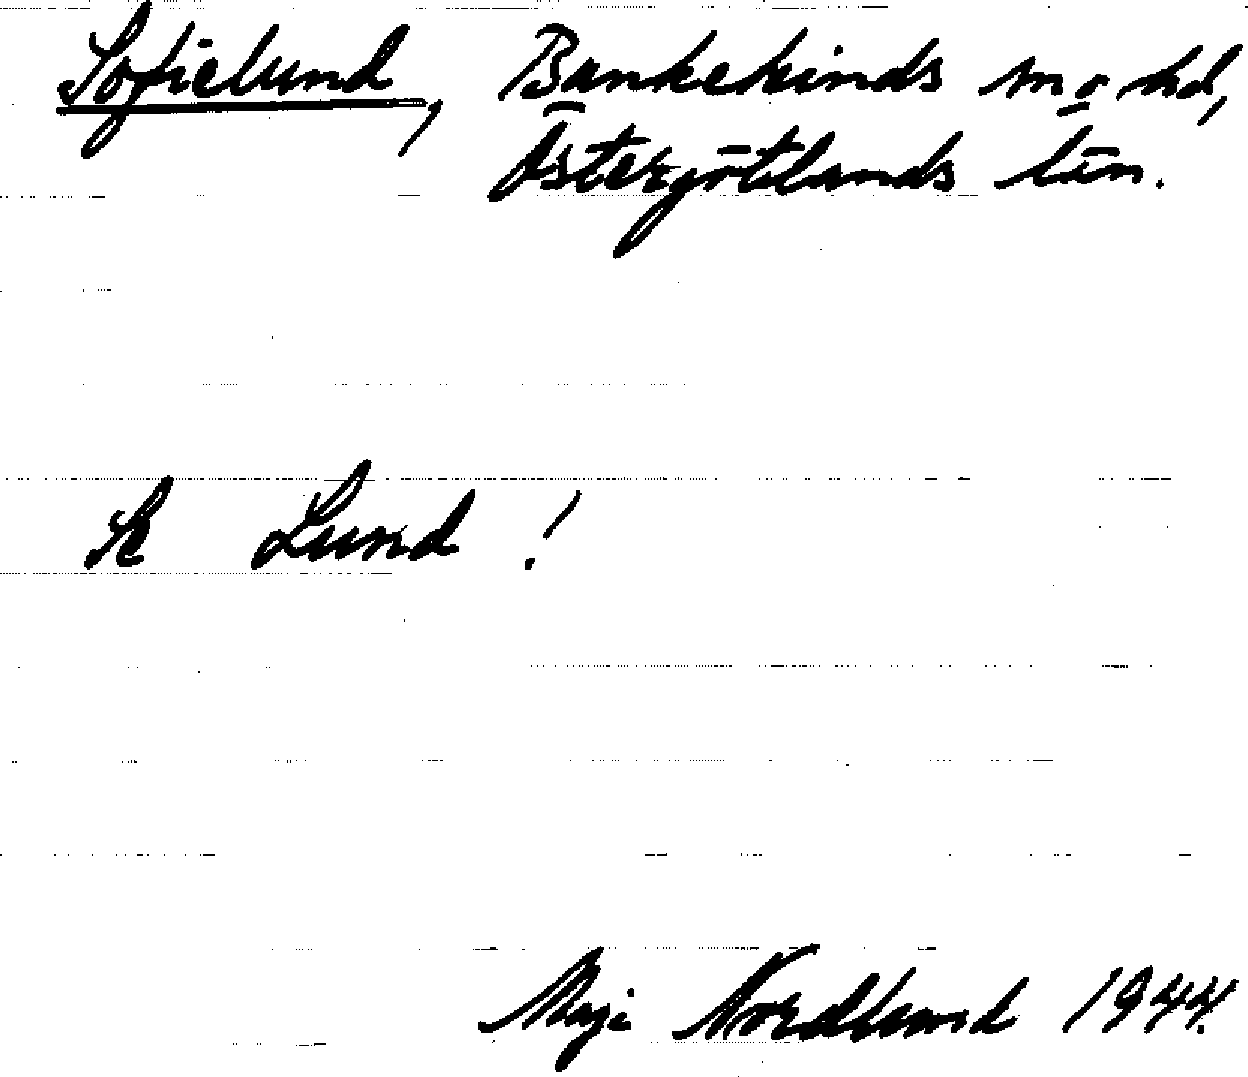 Sofielund, Bankekinds sn o hd,
Östergötlands län.
Se Lund!
Maji Nordlund 1944.